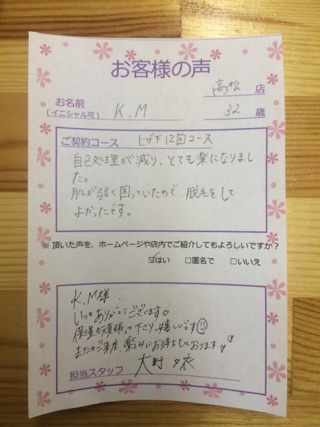 お客様の声
高松 店
お名前
(イニシャル可) K.M 32 歳
ご契約コース ヒザ下12回コース
自己処理が減り、とても楽になりまし
た。
肌が弱く困っていたので 脱毛をして
よかったです。
※頂いた声を、ホームページや店内でご紹介してもよろしいですか？
☑はい □匿名で □いいえ
K.M様
いつもありがとうございます。
保湿を頑張って下さり嬉しいです
またのご来店、楽しみにお待ちしております
担当スタッフ